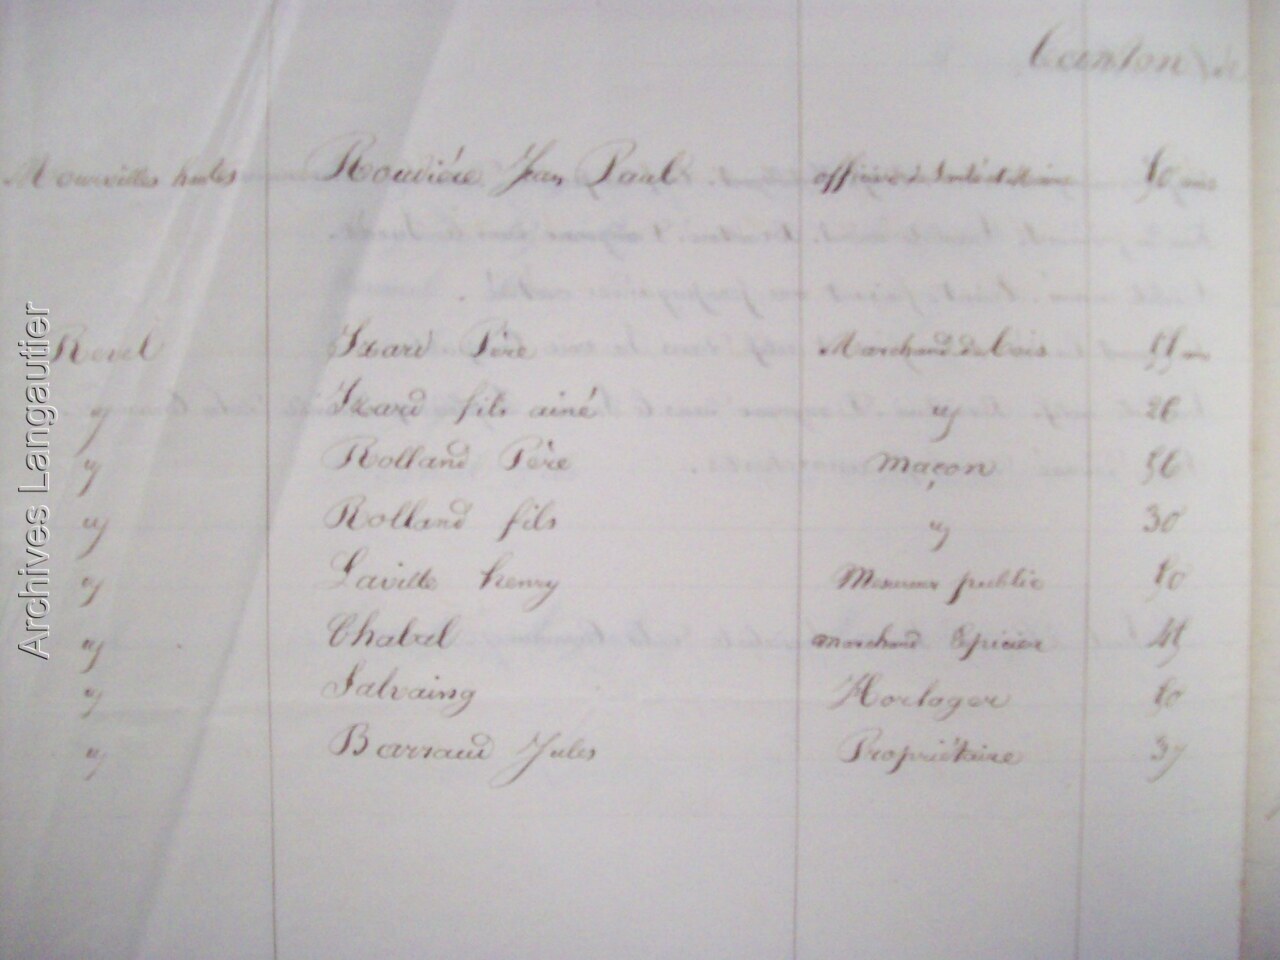 Canton de
Mourvilles hautes Rouvière Jean Paul officier de Santé 50 ans
Revel Izard Père Marchand de bois 55 ans
id Izard fils ainé id 26
id Rolland Père Maçon 56
id Rolland fils id 30
id Laville henry Mesureur public 50
id Chabal marchand Epicier 45
id Salvaing Horloger 50
id Barraud Jules Propriétaire 37
Archives Langautier